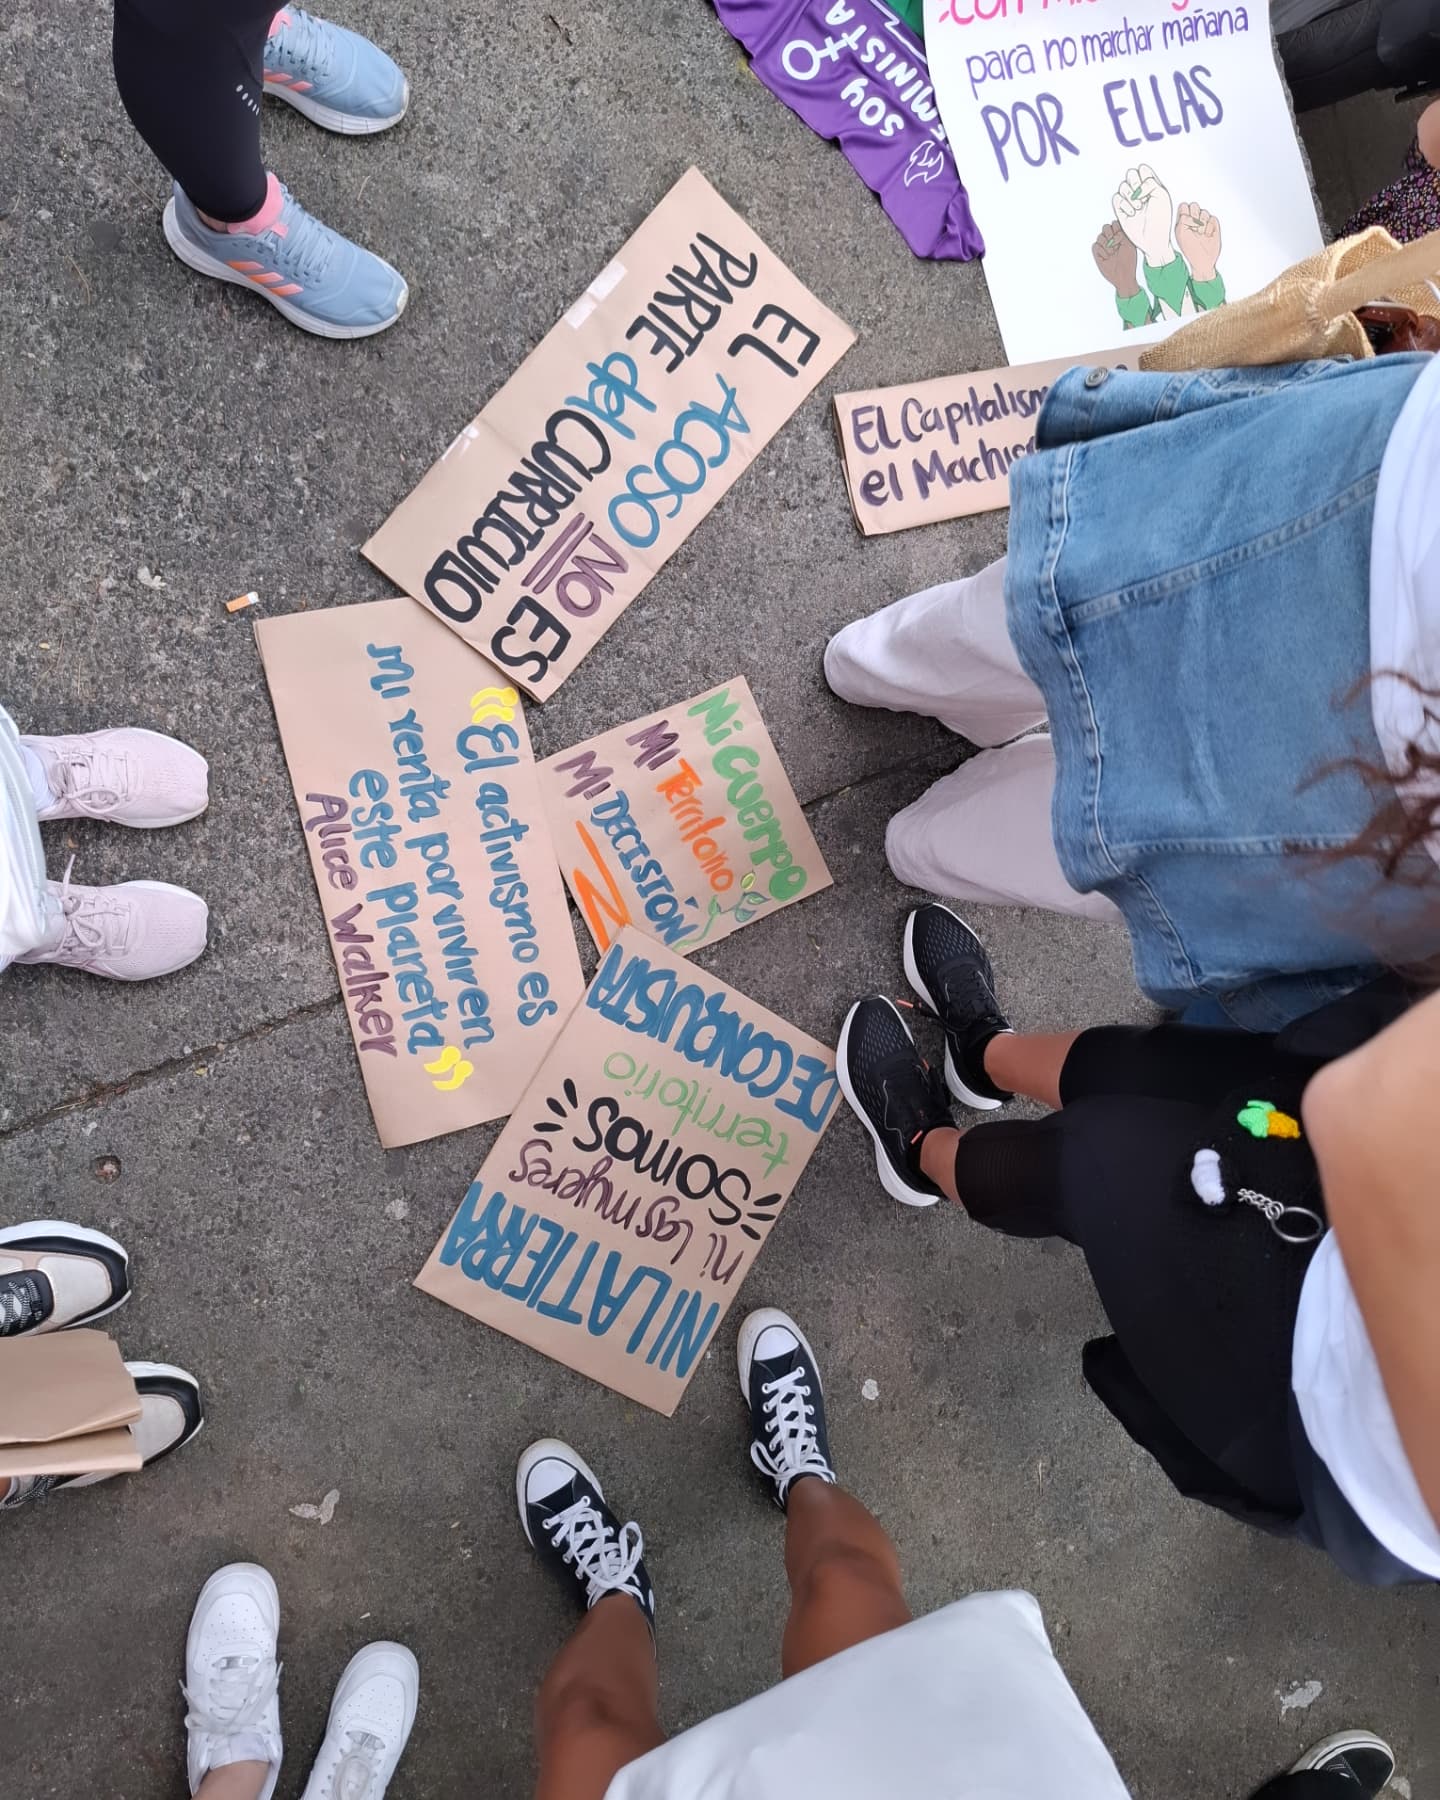 SOY
FEMINISTA
para no marchar mañana
POR ELLAS
EL ACOSO NO ES
PARTE del CURRICULO
El Capitalism
el Machis
"El activismo es
Mi renta por vivir en
este planeta"
Alice Walker
Mi CUERPO
Mi Territorio
Mi DECISIÓN
NI LA TIERRA
ni las mujeres
SOMOS
territorio
DE CONQUISTA